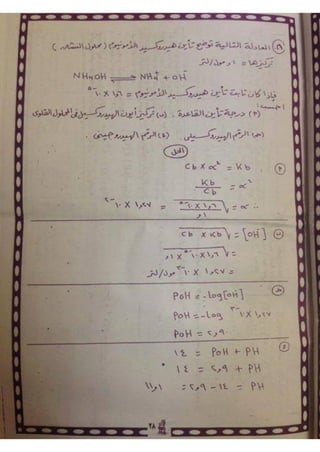 (٨) المعادلة التالية توضح تأين هيدروكسيد الأمونيوم ( محلول النشادر )
تركيزها = ٠,١ مول/لتر
NH4OH ⇌ NH4⁺ + OH⁻
فإذا كان ثابت تأين هيدروكسيد الأمونيوم = ١,٦ × ١٠⁻⁵
احسب :
(أ) درجة تأين القاعدة . (ب) تركيز أيون الهيدروكسيل فى المحلول القلوى
(جـ) الرقم الهيدروكسيلى (د) الرقم الهيدروجينى .
الحل
Cb × α² = Kb
Kb / Cb = α²
∴ α = √(١,٦ × ١٠⁻⁵ / ٠,١) = ١,٢٧ × ١٠⁻²
(ب) [OH⁻] = √(Cb × Kb)
= √(١,٦ × ١٠⁻⁵ × ٠,١)
= ١,٢٧ × ١٠⁻³ مول/لتر
(جـ) POH = -Log[OH]
POH = -Log ١,٢٧ × ١٠⁻³
POH = ٢,٩٠
(د)
١٤ = POH + PH
١٤ = ٢,٩ + PH
PH = ١٤ - ٢,٩ = ١١,١
٢٨